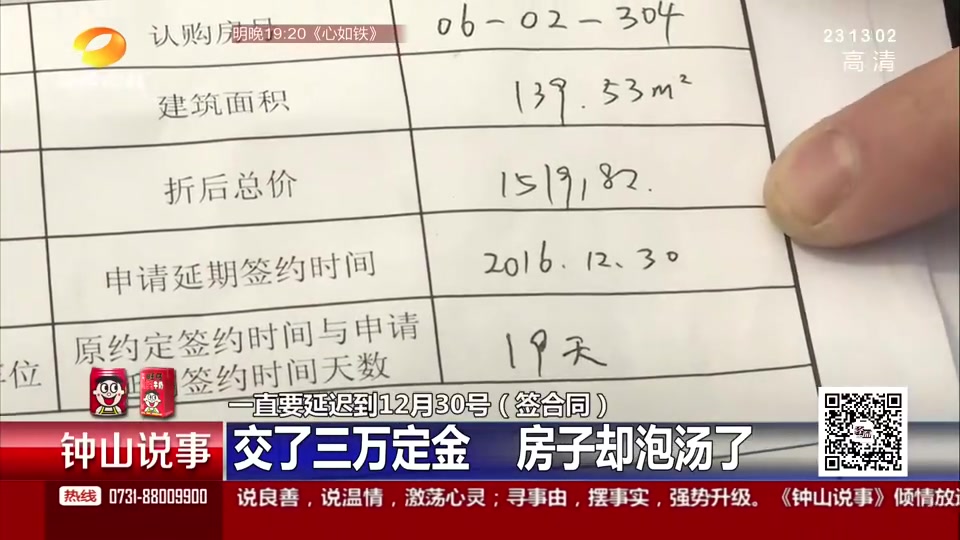 认购房号 06-02-304
明晚19:20《心如铁》
231302
高清
建筑面积 139.53m²
折后总价 1519,82.
申请延期签约时间 2016.12.30
原约定签约时间与申请
签约时间天数 19天
位
一直要延迟到12月30号（签合同）
钟山说事
交了三万定金 房子却泡汤了
热线 0731-88009900
说良善，说温情，激荡心灵；寻事由，摆事实，强势升级。《钟山说事》倾情放